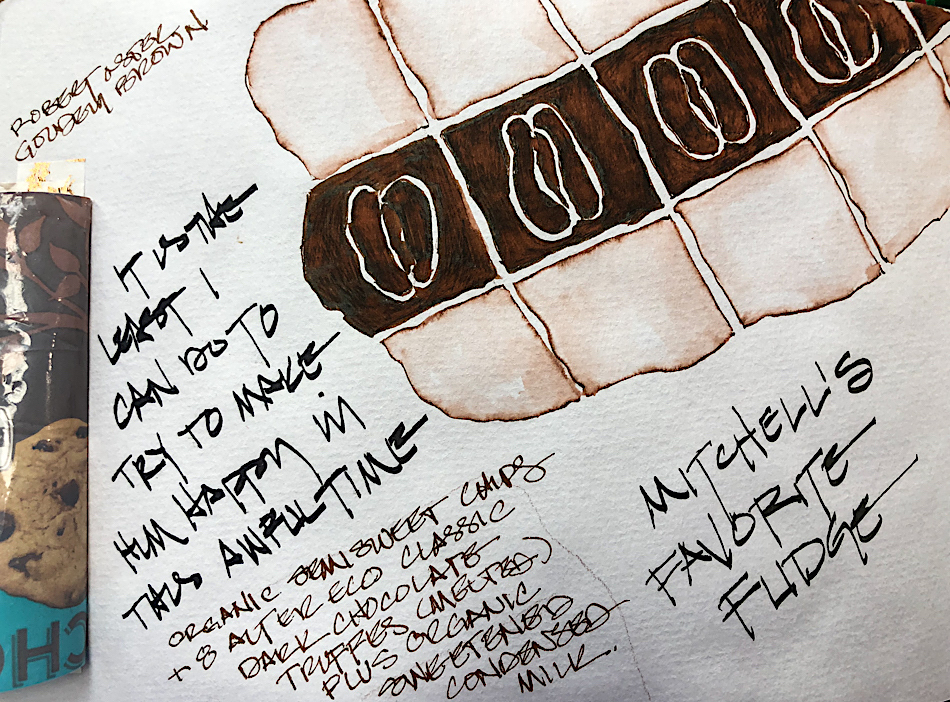 ROBERT OSTER
GOUDEN BROWN
IT IS THE
LEAST I
CAN DO TO
TRY TO MAKE
HIM HAPPY IN
THIS AWFUL TIME
ORGANIC SEMISWEET CHIPS
+ 8 ALTER ECO CLASSIC
DARK CHOCOLATE
TRUFFLES (MELTED)
PLUS ORGANIC
SWEETENED
CONDENSED
MILK.
MITCHELL'S
FAVORITE
FUDGE
CH